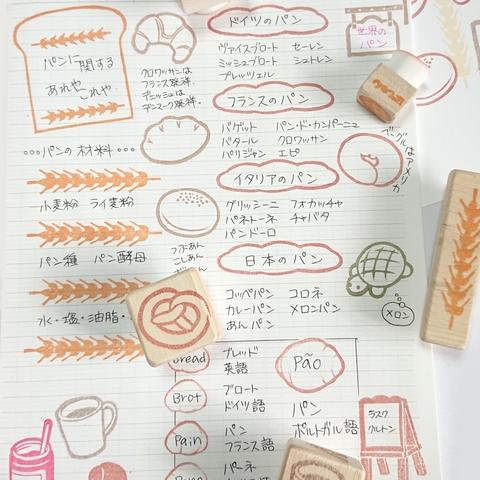 パンに関する
あれや、これや、
クロワッサンは
フランス発祥.
デニッシュは
デンマーク発祥.
・・・パンの材料・・・
小麦粉 ライ麦粉
パン種 パン酵母
水・塩・油脂・
つぶあん
こしあん
ドイツのパン
ヴァイスブロート ゼーレン
ミッシュブロート シュトレン
プレッツェル
フランスのパン
バゲット パン・ド・カンパーニュ
バタール クロワッサン
パリジャン エピ
イタリアのパン
グリッシーニ フォカッチャ
パネトーネ チャバタ
パンドーロ
日本のパン
コッペパン コロネ
カレーパン メロンパン
あんパン
世界の
パン
ベーグルはアメリカ
メロン
bread
ブレッド
英語
Brot
ブロート
ドイツ語
Pain
パン
フランス語
パーネ
Pão
パン
ポルトガル語
ラスク
クルトン